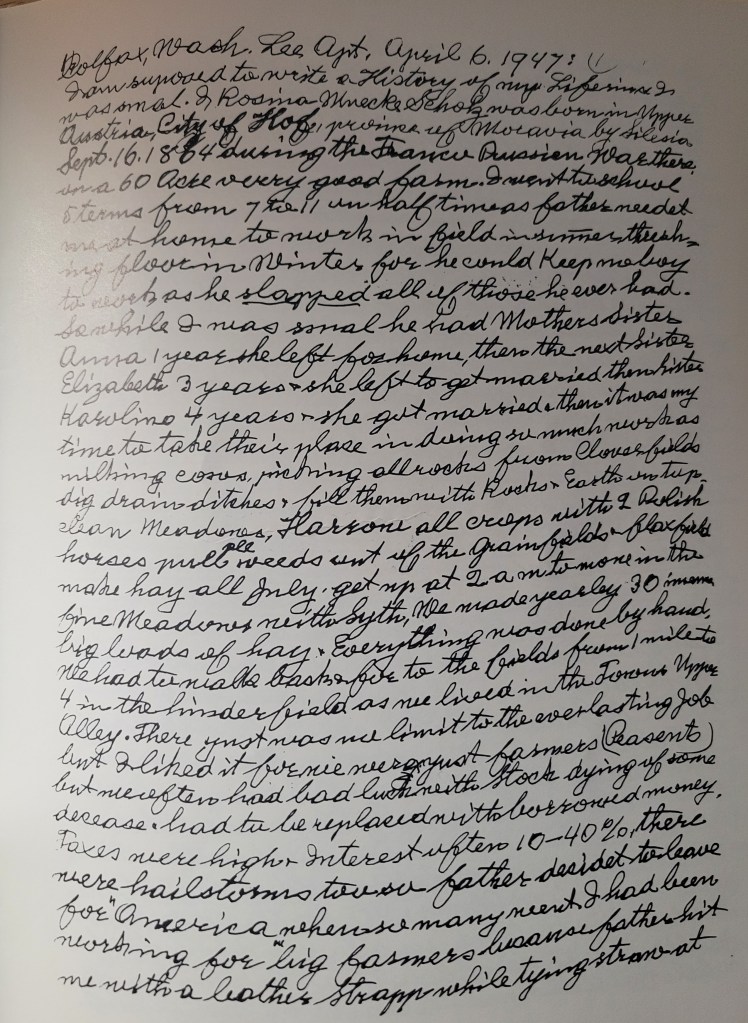 Colfax, Wash. Lee Apt. April 6. 1947: (1
I am suposed to write a History of my Life since I
was smal. I Rosina Mnecke Scholz was born in Upper
Austria, City of Hof, provinse of Moravia by Silesia
Sept. 16. 1864 during the Franco Prussien War there
on a 60 Acre verry good farm. I went to school
5 terms from 7 to 11 on half time as father needet
me at home to work in field in sumer, thresh=
ing floor in Winter for he could Keep no boy
to work as he slapped all of those he ever had.
So while I was smal he had Mothers Sister
Anna 1 year she left for home, then the next Sister
Elizabeth 3 years & she left to get married then Sister
Karolina 4 years & she got married & then it was my
time to take their plase in doing so much work as
milking cows, picking all rocks from Clover fields
dig drain ditches & fill them with Rocks & Earth on top.
clean Meadows, Harrow all crops with 2 Polish
horses pull all weeds out of the Grainfields & flaxfield
make hay all July. get up at 2 a m to mow in the
fine Meadows with Syth, We made yearley 30 imense
big loads of hay & Everything was done by hand,
We had to walk back & for to the fields from 1 mile to
4 in the hinder field as we lived in the Town Upper
Alley. There yust was no limit to the everlasting Job
but I liked it for we were yust farmers (Peasents)
but we often had bad luck with Stock dying of some
decease & had to be replased with borrowed money.
Taxes were high & Interest often 10-40%, there
were hailstorms too so father decidet to leave
for "America when so many went. I had been
working for "big farmers because father hit
me with a leather Strapp while tying straw at